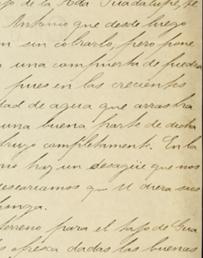 de la Hda Guadalupe, de
Antonio que desde luego
sin cobrarlo, pero pone
una compuerta de piedra
pues en las crecientes
dad de agua que arrastra
una buena parte de dicha
truyo completamente. En la
no hay un desagüe que nos
desearíamos que U diera sus
ponga.
terreno para el tajo de Gua
ofresca dadas las buenas